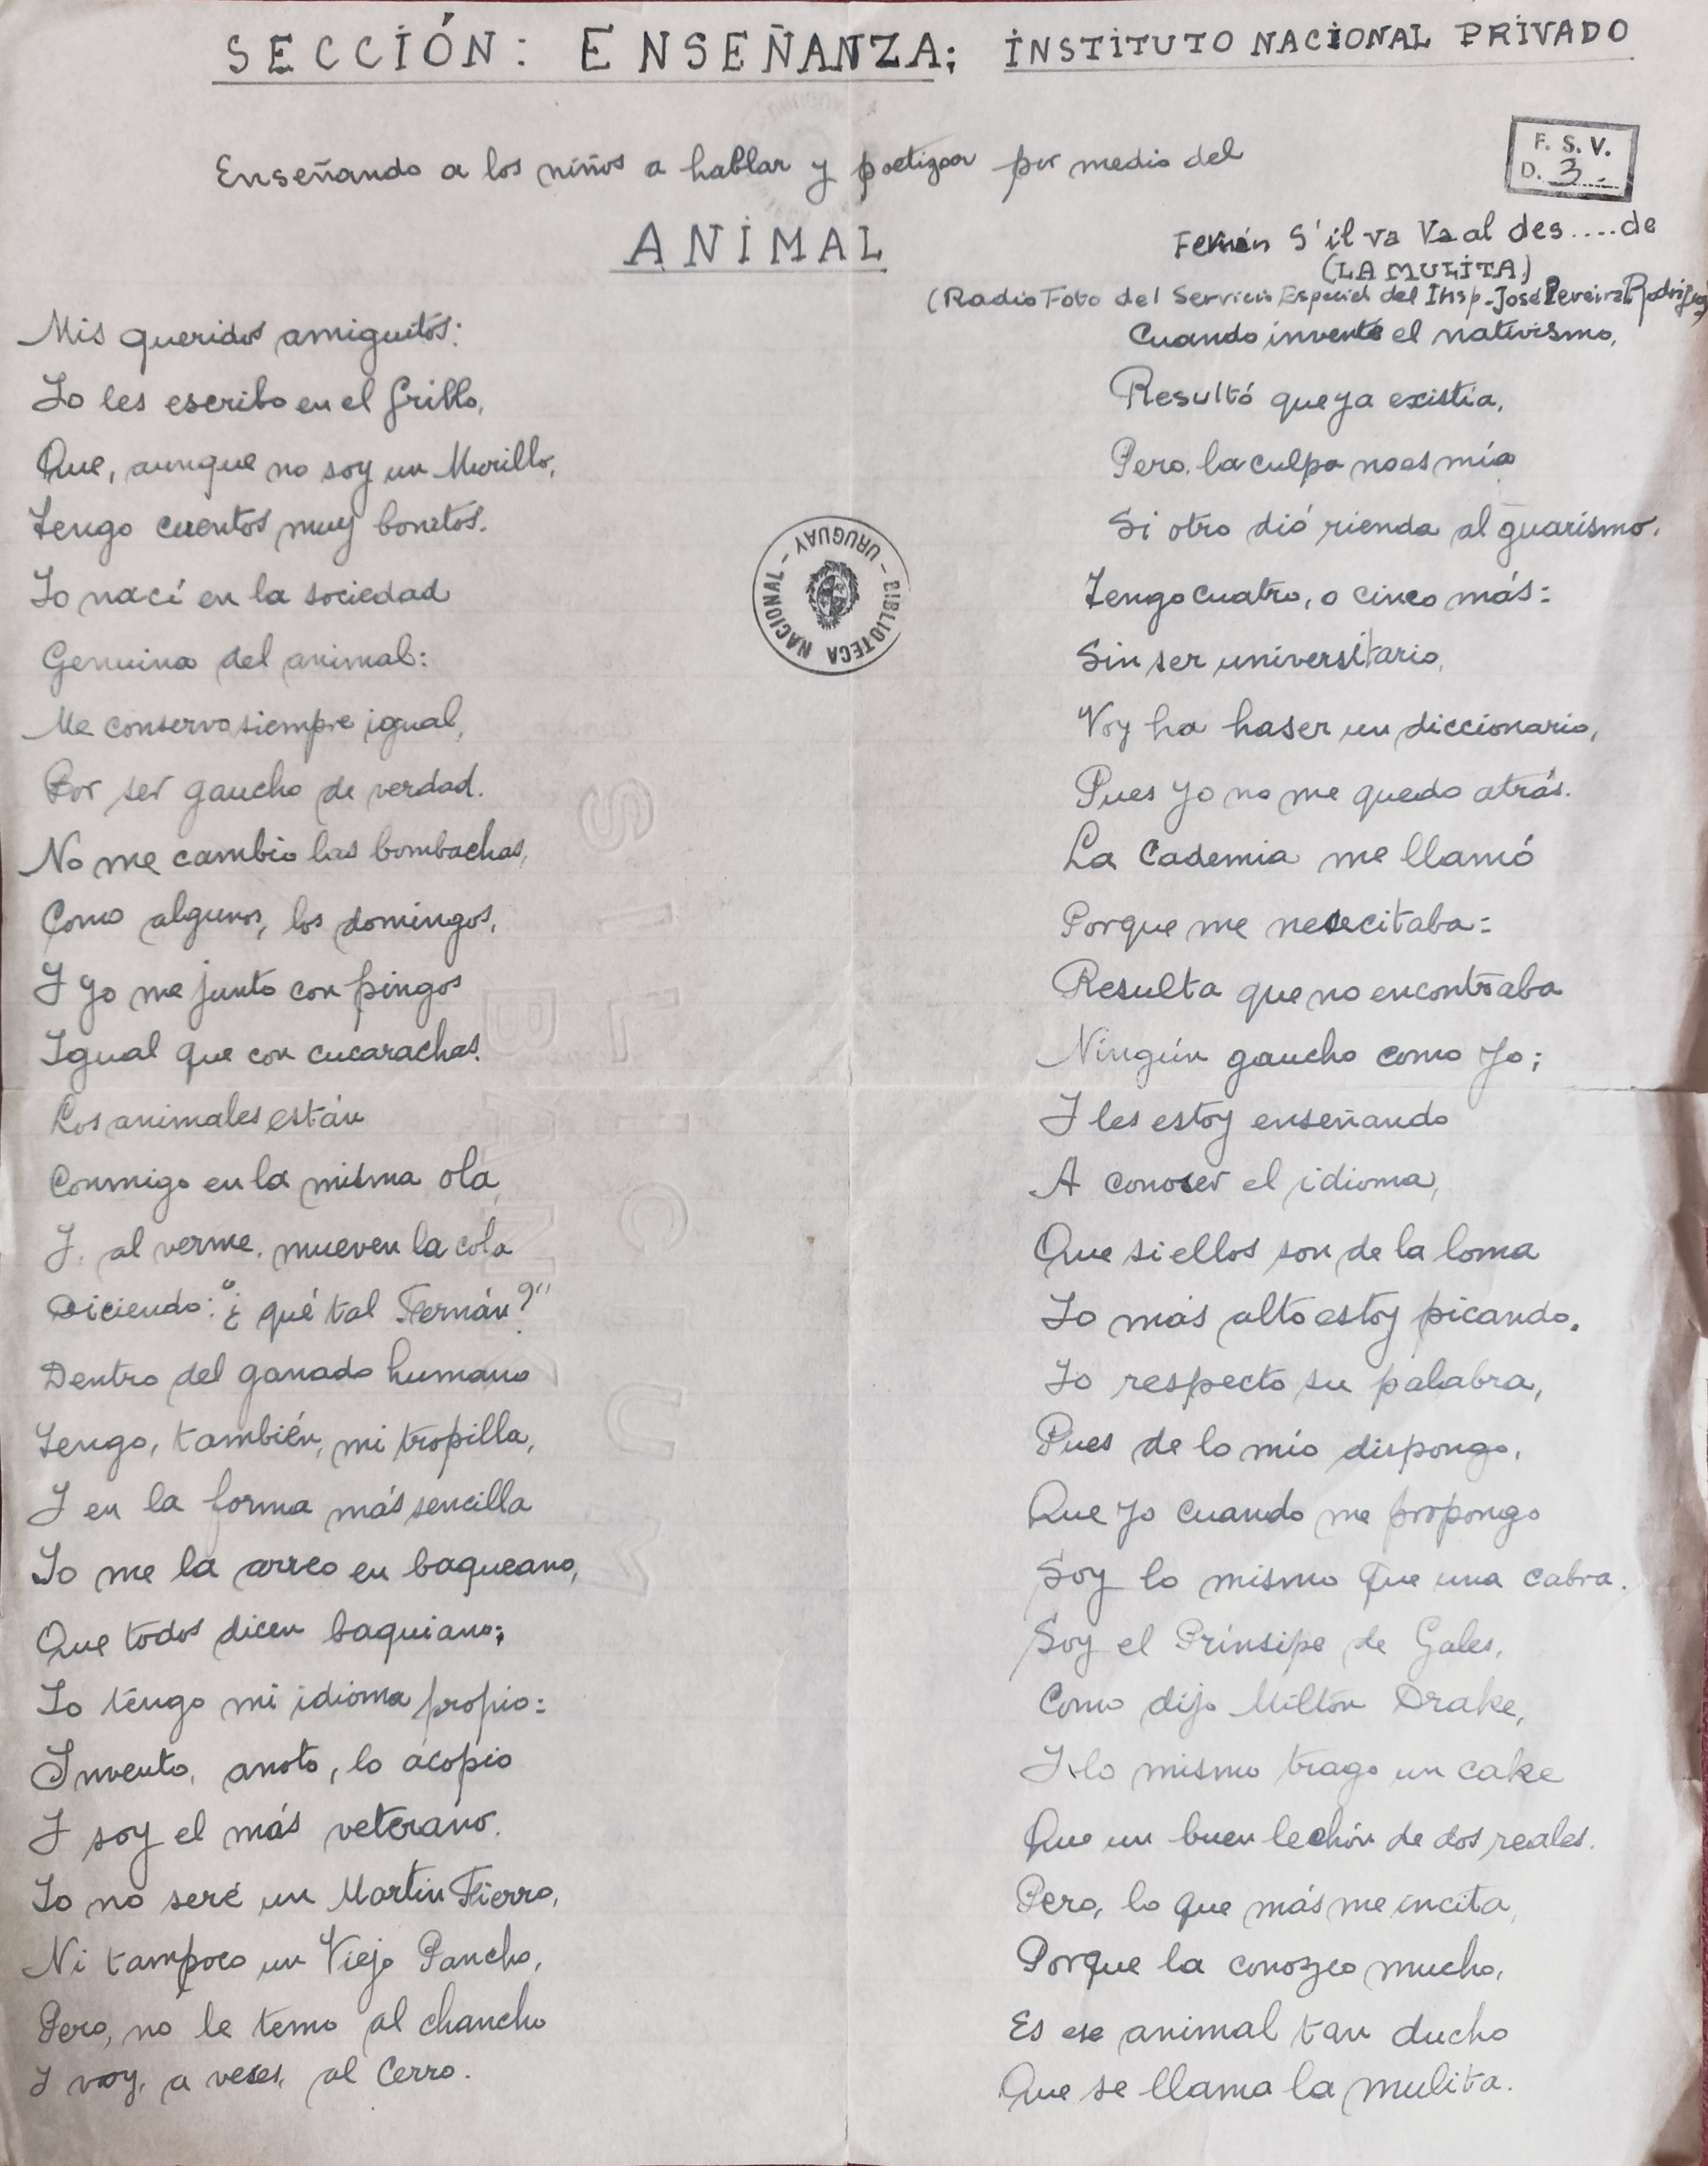 SECCIÓN: ENSEÑANZA; INSTITUTO NACIONAL PRIVADO
Enseñando a los niños a hablar y poetizar por medio del
ANIMAL
F. S. V.
D. 3
Fernán S'il va Va al des....de
(LA MULITA)
(Radio Foto del Servicio Especial del Insp. José Pereira Rodríguez)
Mis queridos amiguitos:
Yo les escribo en el Grillo,
Que, aunque no soy un Murillo,
Tengo cuentos muy bonitos.
Yo nací en la sociedad
Genuina del animal:
Me conservo siempre igual,
Por ser gaucho de verdad.
No me cambio las bombachas,
Como algunos, los domingos,
Y yo me junto con pingos
Igual que con cucarachas.
Los animales están
Conmigo en la misma ola,
Y, al verme, mueven la cola
Diciendo: "¿qué tal Fernán?"
Dentro del ganado humano
Tengo, también, mi tropilla,
Y en la forma más sencilla
Yo me la arreo en baqueano,
Que todos dicen baquiano;
Yo tengo mi idioma propio:
Invento, anoto, lo acopio
Y soy el más veterano.
Yo no seré un Martín Fierro,
Ni tampoco un Viejo Pancho,
Pero, no le temo al chancho
Y voy, a veses, al Cerro.
Cuando inventé el nativismo,
Resultó que ya existía,
Pero, la culpa no es mía
Si otro dió rienda al guarismo.
Tengo cuatro, o cinco más:
Sin ser universitario,
Voy ha haser un diccionario,
Pues yo no me quedo atrás.
La Cademia me llamó
Porque me nesecitaba:
Resulta que no encontraba
Ningún gaucho como yo;
Y les estoy enseñando
A conoser el idioma,
Que si ellos son de la loma
Yo más alto estoy picando.
Yo respecto su palabra,
Pues de lo mío dispongo,
Que yo cuando me propongo
Soy lo mismo que una cabra.
Soy el Prínsipe de Gales,
Como dijo Milton Drake,
Y lo mismo trago un cake
Que un buen lechón de dos reales.
Pero, lo que más me incita,
Porque la conozco mucho,
Es ese animal tan ducho
Que se llama la mulita.
BIBLIOTECA NACIONAL - URUGUAY -